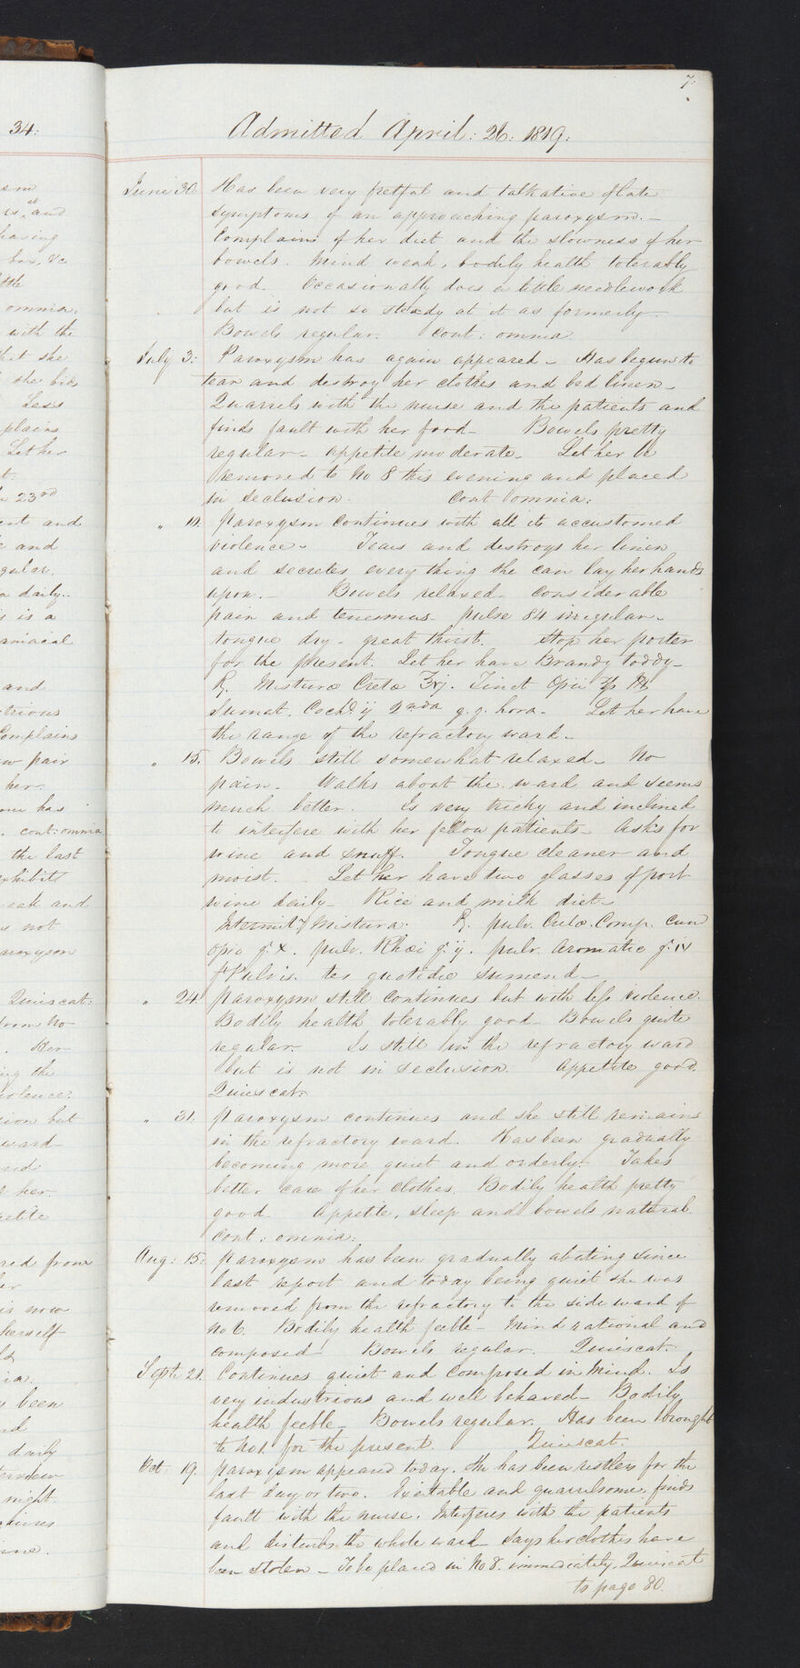 7.
34:
Admitted April: 26: 1819.
June 30 Has been very fretful and talkative of late
symptoms of an approaching paroxysm. —
Complains of her diet and the slowness of her
bowels. Mind weak, bodily health tolerably
good. Occasionally does a little needlework
but is not so steady at it as formerly —
Bowels regular. Cont: omnia
July 3: Paroxysm has again appeared — Has begun to
tear and destroy her clothes and bed linen —
Quarrels with the nurse and the patients and
finds fault with her food — Bowels pretty
regular — appetite moderate — Let her be
removed to No 8 this evening and placed
in seclusion. Cont omnia:
" 10. Paroxysm continues with all its accustomed
violence — Tears and destroys her linen
and secretes every thing she can lay her hands
upon. — Bowels relaxed — Considerable
pain and tenesmus — pulse 84 irregular —
tongue dry — great thirst. Stop her porter
for the present. Let her have Brandy toddy —
R. Mistura Creta Tinct Opii
Sumat. Cochl ij 2nda q. q. hora — Let her have
the range of the refractory ward —
" 15. Bowels still somewhat relaxed — No
pain — Walks about the ward and seems
much better. Is very tricky and inclined
to interfere with her fellow patients — Asks for
wine and snuff. Tongue cleaner and
moist. Let her have two glasses of port
wine daily — Rice and milk diet —
Mistura. R. pulv. Creta. Comp. cum
Opio gr x. pulv. Rhei gr ij. pulv. Aromatic gr iv
ft Pulvis. ter quotidie sumend —
" 24 Paroxysm still continues but with less violence.
Bodily health tolerably good — Bowels quite
regular — Is still in the refractory ward
but is not in seclusion. Appetite good.
Quiescat.
" 31. Paroxysm continues and she still remains
in the refractory ward. Has been gradually
becoming more quiet and orderly. Takes
better care of her clothes. Bodily health pretty
good. Appetite, sleep and bowels natural.
Cont: omnia:
Aug: 15. Paroxysm has been gradually abating since
last report and today being quiet she was
removed from the refractory to the side ward of
No 6. Bodily health feeble — Mind rational and
composed. Bowels regular. Quiescat.
Sept: 21. Continues quiet and composed in mind. Is
very industrious and well behaved — Bodily
health feeble — Bowels regular. Has been brought
to No 1 for the present. Quiescat.
Oct 19. Paroxysm appeared today. She has been restless for the
last day or two. Excitable and quarrelsome, finds
fault with the nurse. Interferes with the patients
and disturbs the whole ward — Says her clothes have
been stolen — To be placed in No 8. immediately. Quiescat
to page 80.